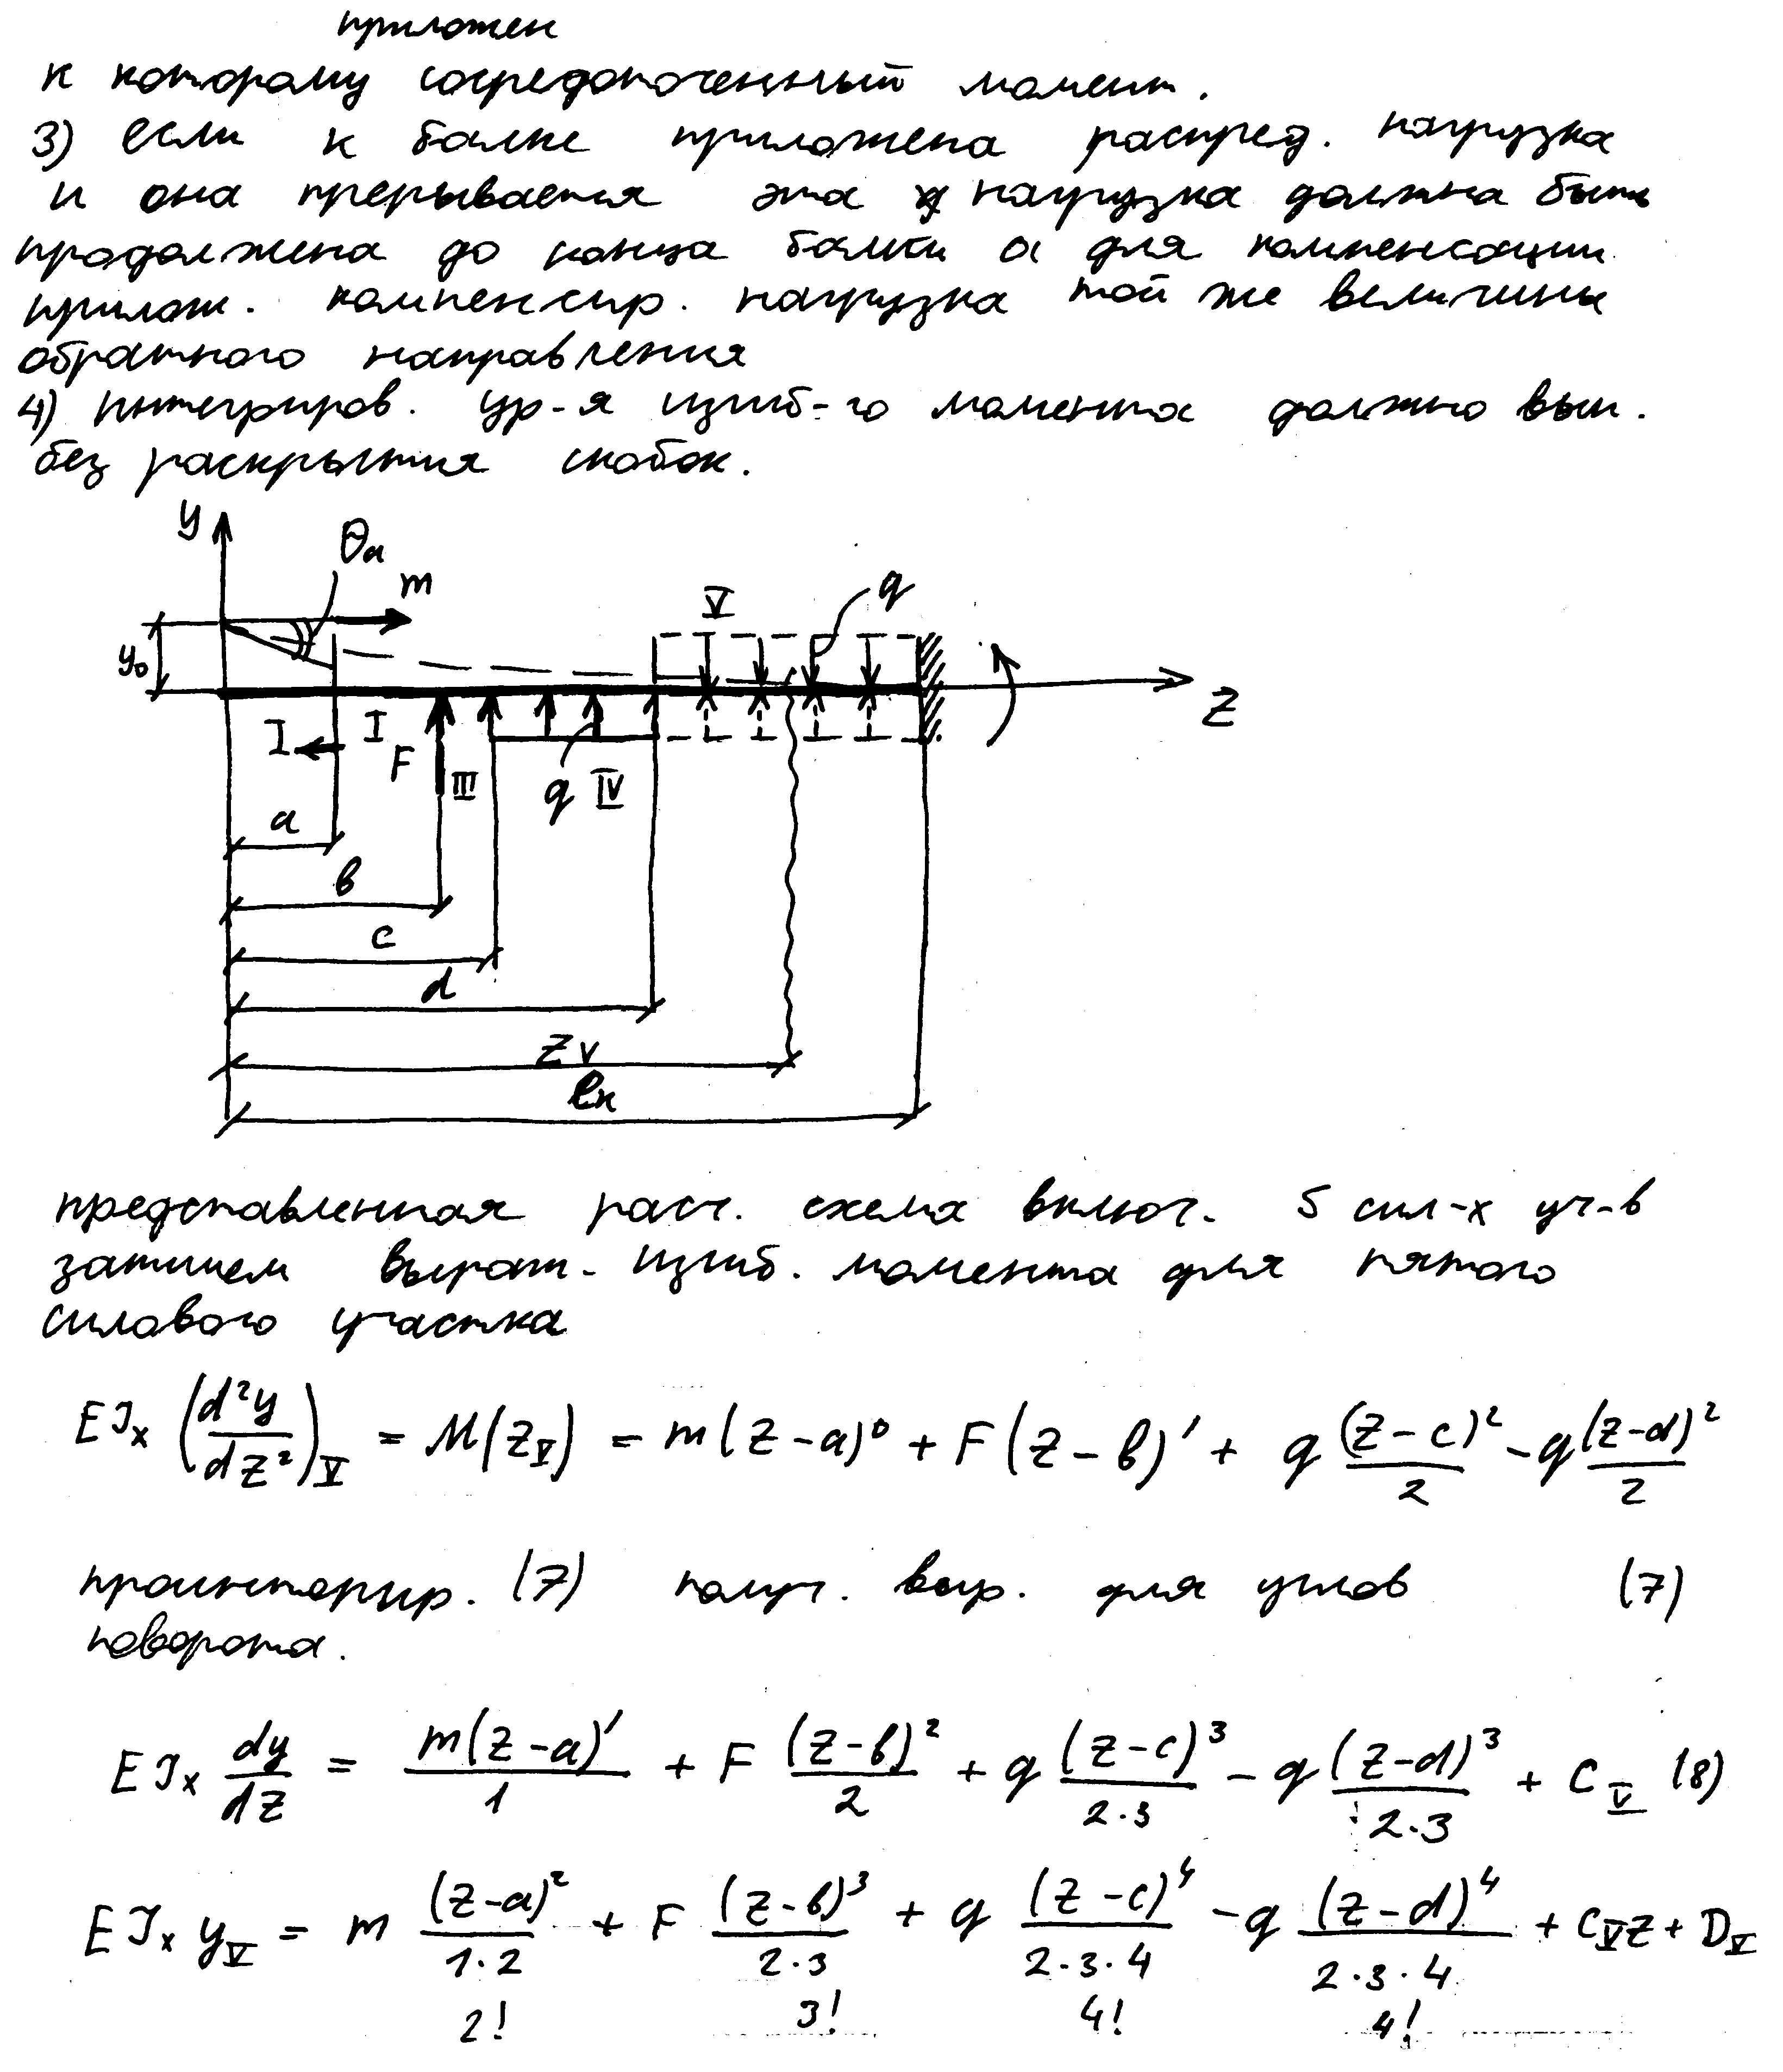 приложен
к которому сосредоточенный момент.
3) если к балке приложена распред. нагрузка
и она прерывается эта нагрузка должна быть
продолжена до конца балки а для компенсации
прилож. компенсир. нагрузка той же величины
обратного направления
4) интегриров. ур-я изгиб-го момента должно вып.
без раскрытия скобок.
y
θa
m
V
q
y₀
z
I
I
F
III
q
IV
a
в
c
d
z V
ℓк
представленная расч. схема включ. 5 сил-х уч-в
запишем выраж. изгиб. момента для пятого
силового участка
EJx (d²y/dz²)V = M(zV) = m(z-a)⁰ + F(z-в)¹ + q (z-c)²/2 - q (z-d)²/2
проинтегрир. (7) получ. выр. для углов (7)
поворота.
EJx dy/dz = m(z-a)¹/1 + F (z-в)²/2 + q (z-c)³/2·3 - q (z-d)³/2·3 + CV (8)
EJx yV = m (z-a)²/1·2 + F (z-в)³/2·3 + q (z-c)⁴/2·3·4 - q (z-d)⁴/2·3·4 + CVz + DV
2! 3! 4! 4!